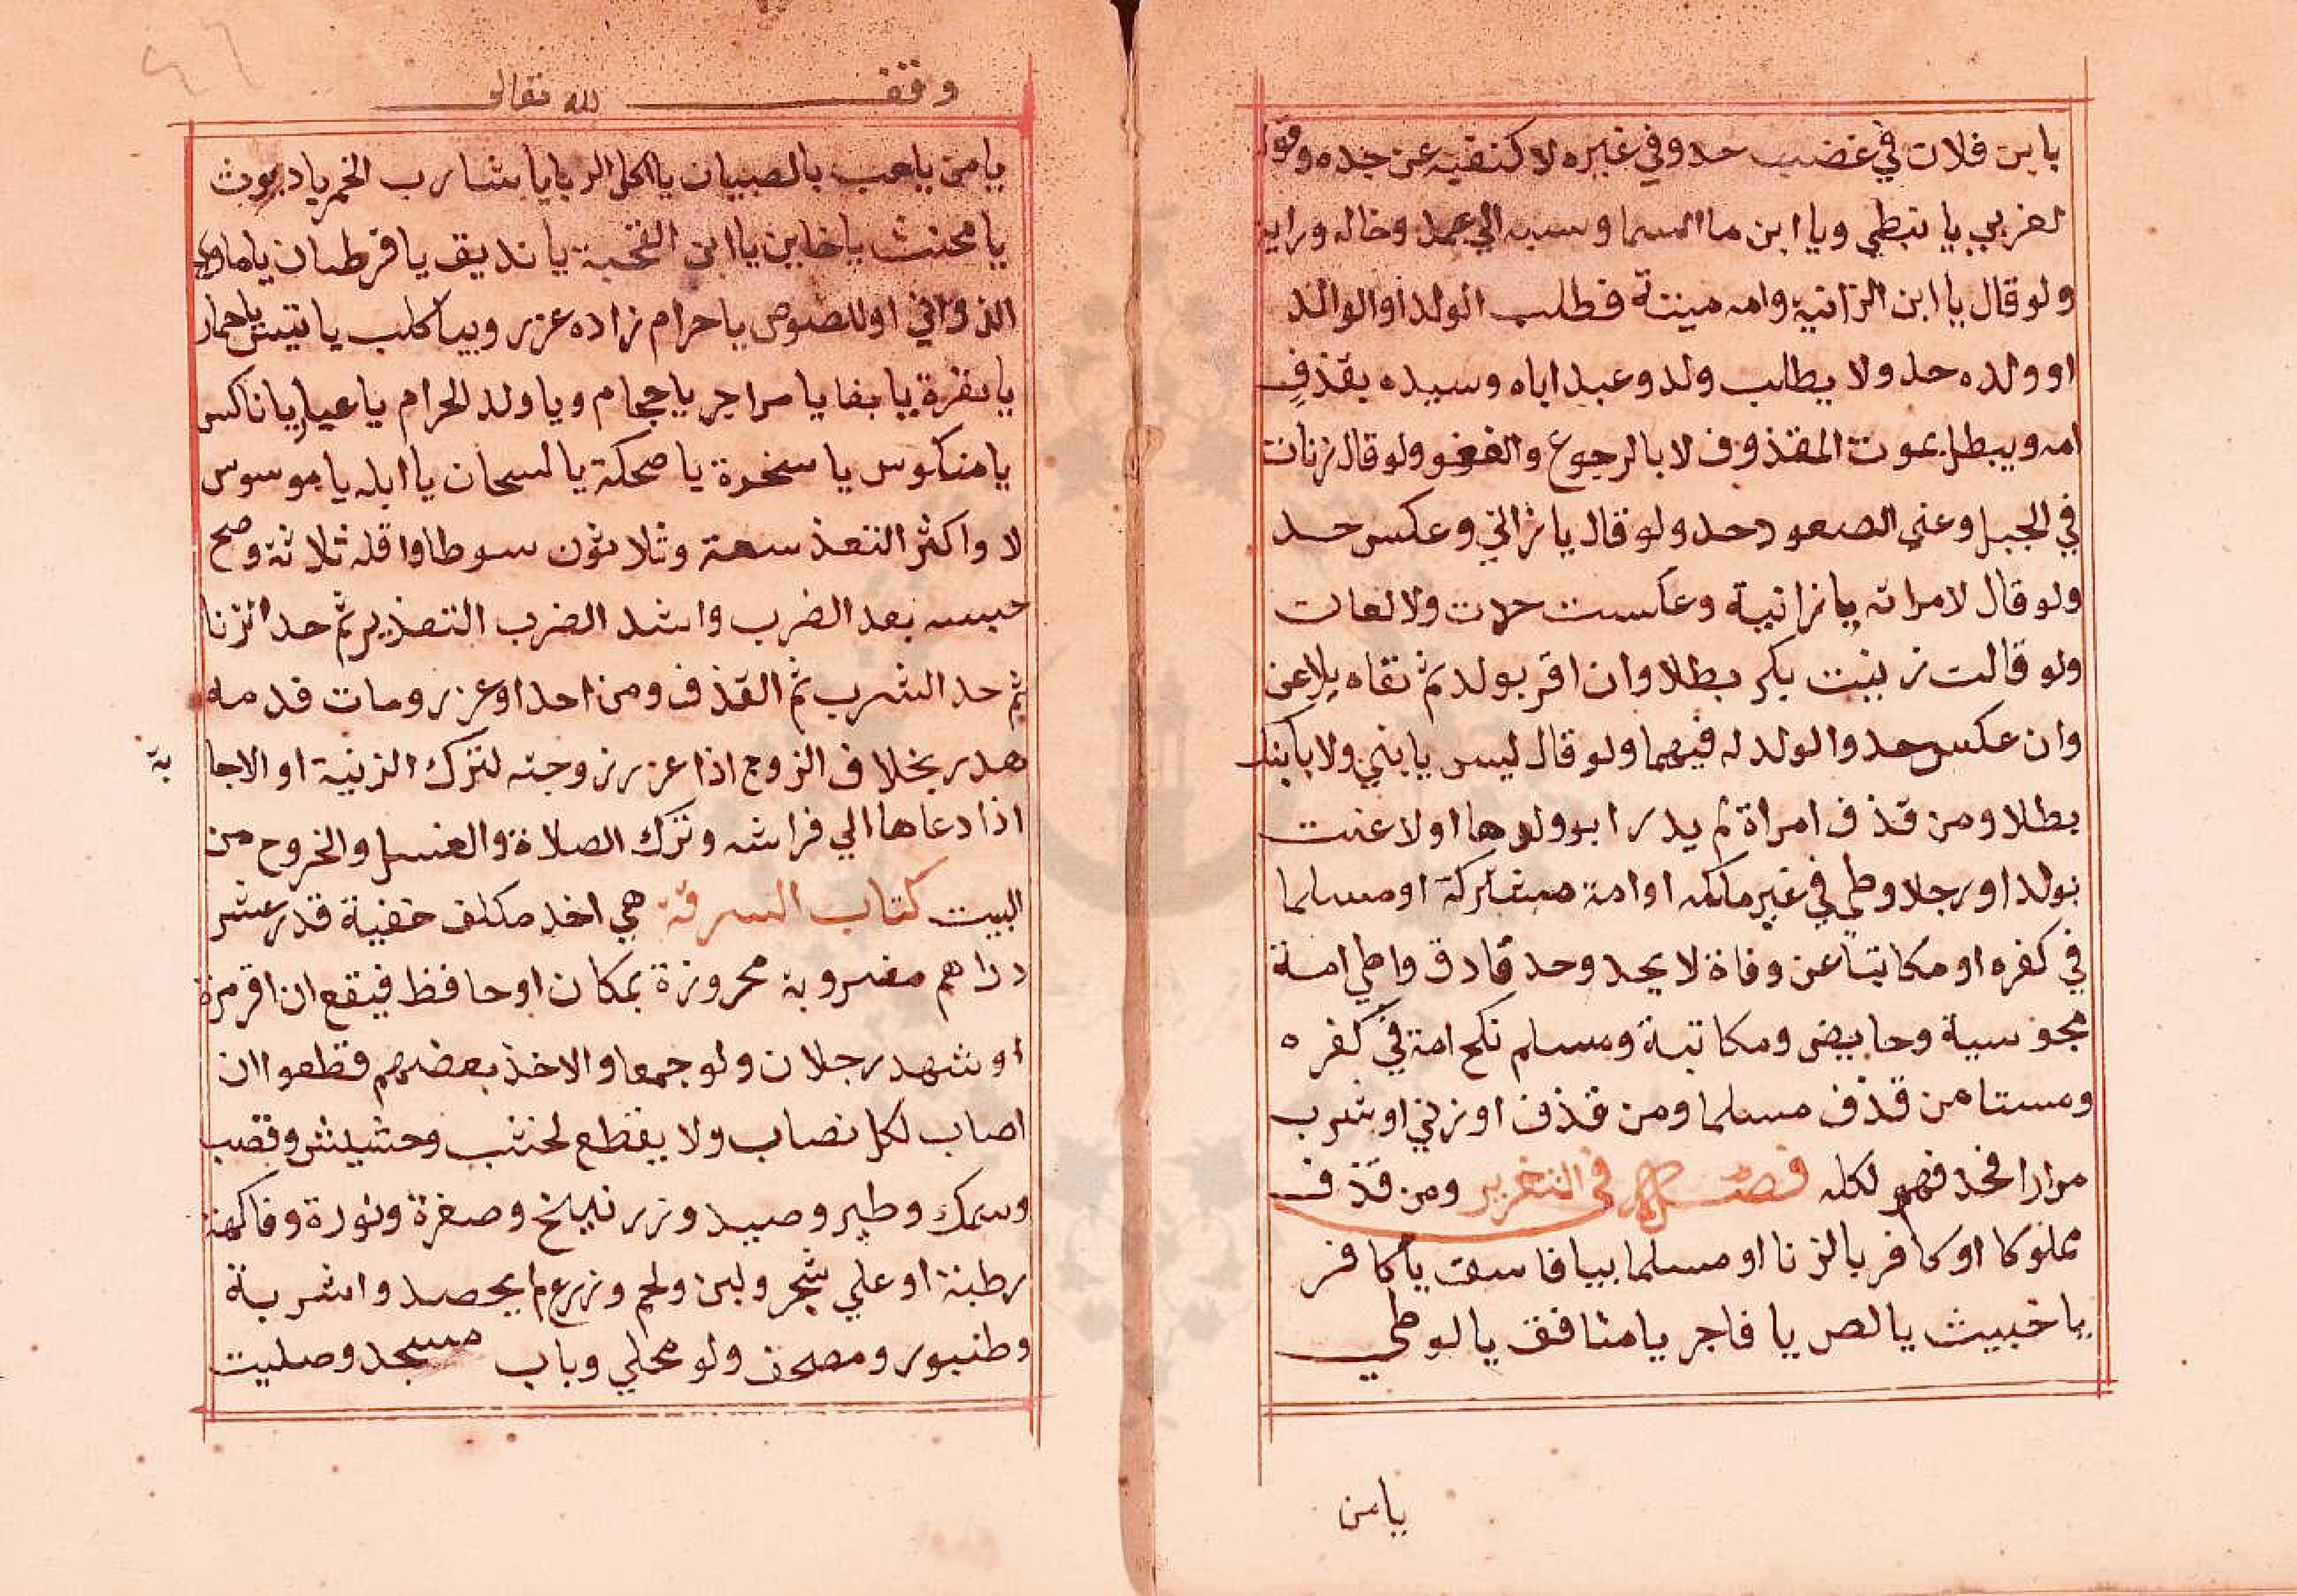 يا بن فلان في غضب حد وفي غيره لا كنفيه عن جده وقوله
لعربي يا نبطي ويا ابن ما السما ونسبه الي عمه وخاله ورابه
ولو قال يا ابن الزانية وامه ميتة فطلب الولد او الوالد
او ولده حد ولا يطالب ولد وعبد اباه وسيده بقذف
امه ويبطل بموت المقذوف لا بالرجوع والعفو ولو قال زنات
في الجبل وعني الصعود حد ولو قال يا زاني وعكس حد
ولو قال لامراته يا زانية وعكست حدت ولا لعان
ولو قالت زنيت بكر بطلا وان اقر بولد ثم نفاه يلاعن
وان عكس حد والولد له فيهما ولو قال ليس يابني ولا بابنك
بطلا ومن قذف امراة لم يدر ابو ولدها او لاعنت
بولد او رجلا وطي في غير ملكه او امة مشتركة او مسلما
في كفره او مكاتبا عن وفاة لا يحد وحد قاذف واطي امة
مجوسية وحايض ومكاتبة ومسلم نكح امة في كفره
ومستامن قذف مسلما ومن قذف او زني او شرب
مرارا فحد فهو لكله فصل في التعزير ومن قذف
مملوكا او كافر بالزنا او مسلما بيا فاسق يا كافر
يا خبيث يا لص يا فاجر يا منافق يا لوطي
يا من
وقف لله تعالى
يا من يلعب بالصبيان يا اكل الربا يا شارب الخمر يا ديوث
يا مخنث يا خاين يا ابن القحبة يا زنديق يا قرطبان يا ماوي
الزواني او اللصوص يا حرام زاده عزر وبيا كلب يا تيس يا حمار
يا بقرة يا بغا يا مواجر يا حجام ويا ولد الحرام يا عيار يا ناكس
يا منكوس يا سخرة يا ضحكة يا لسحان يا ابله يا موسوس
لا واكثر التعذ سعة وثلاثون سوطا واقله ثلاثة وصح
حبسه بعد الضرب واشد الضرب التعذير ثم حد الزنا
ثم حد الشرب ثم القذف ومن احد او عزر ومات فدمه
هدر بخلاف الزوج اذا عزر زوجته لترك الزينة او الاجا
به
اذا دعاها الي فراشه وترك الصلاة والغسل والخروج من
البيت كتاب السرقة هي اخذ مكلف خفية قدر عشر
دراهم مضروبة محروزة بمكان او حافظ فيقع ان اقر مرة
او شهد رجلان ولو جمعا والاخذ بعضهم قطعوا ان
اصاب لكل نصاب ولا يقطع لخشب وحشيش وقصب
وسمك وطير وصيد وزرنيخ وصغرة ونورة وفاكهة
رطبة او علي شجر ولبن ولحم وزرع لم يحصد واشربة
وطنبور ومصحف ولو محلي وباب مسجد وصليب